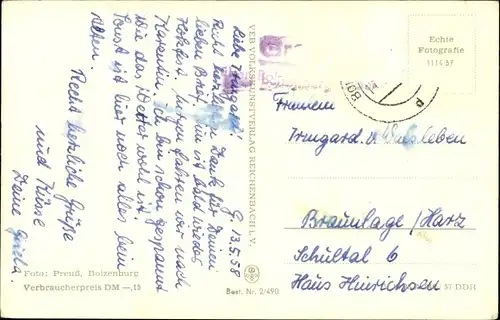 G. 13.5.58
Liebe Irmgard!
Recht herzlichen Dank für Deinen
lieben Brief. Nun ist bald wieder
fahren wir nach
Ich bin schon gespannt
wie das Wetter wohl ist.
Sonst ist hier noch alles beim
Alten.
Recht herzliche Grüße
und Küsse
Deine Gisela.
Foto: Preuß, Boizenburg
Verbraucherpreis DM —,15
VEB VOLKSKUNSTVERLAG REICHENBACH I. V.
Best. Nr. 2/490
Echte
Fotografie
11 14 57
BOI
Irmgard v.
Braunlage/Harz
Schultal 6
Haus Hinrichsen
57 DDR